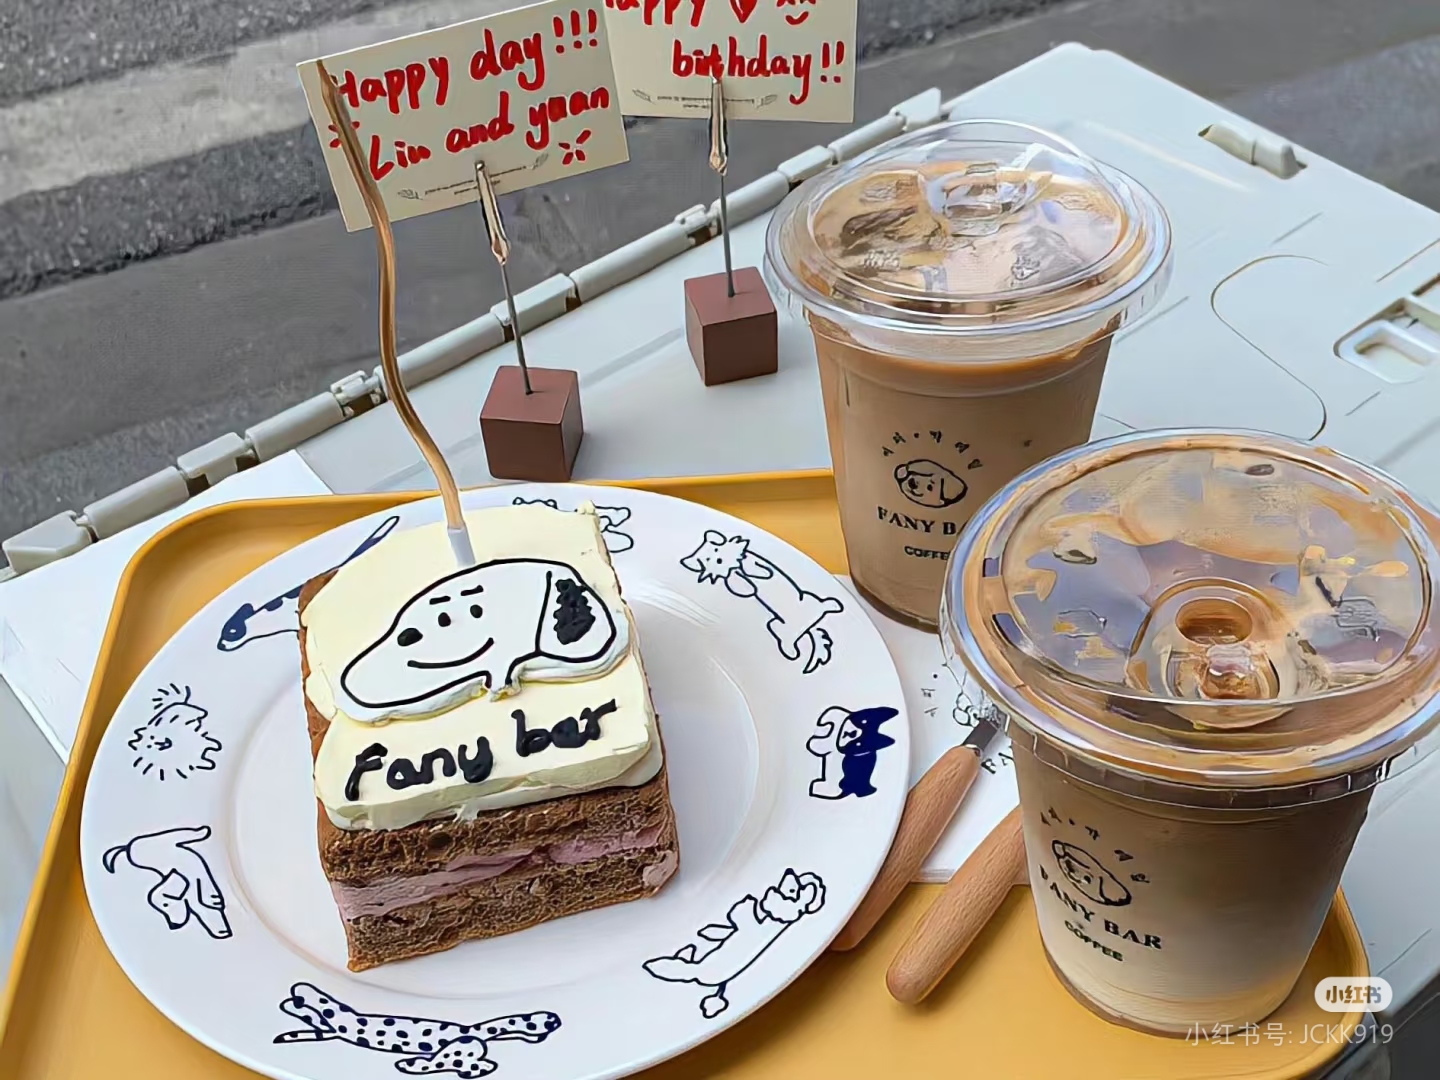 Happy day!!!
Liu and yuan
Happy
birthday!!
Fany bar
FANY B
COFFE
FANY BAR
COFFEE
小红书
小红书号: JCKK919